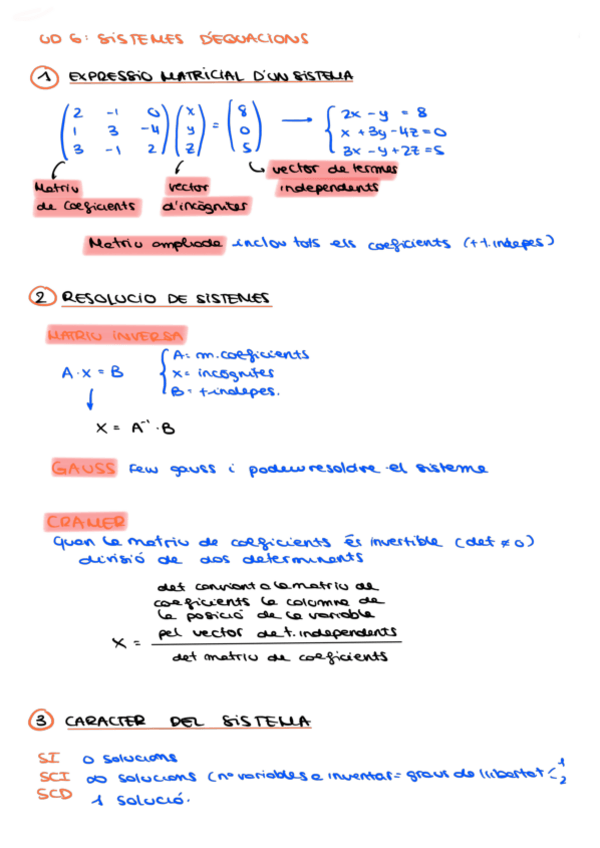 UD 6: SISTEMES D'EQUACIONS
1 EXPRESSIÓ MATRICIAL D'UN SISTEMA
(2 -1 0) (x) = (8) → { 2x - y = 8
(1 3 -4) (y) (0) x + 3y - 4z = 0
(3 -1 2) (z) (5) 3x - y + 2z = 5
Matriu de coeficients
vector d'incògnites
vector de termes independents
Matriu ampliada inclou tots els coeficients (+ t. indepes)
2 RESOLUCIO DE SISTEMES
MATRIU INVERSA
A · X = B
A = m. coeficients
X = incògnites
B = t. indepes.
X = A⁻¹ · B
GAUSS Few gauss i podew resoldre el sistema
CRAMER
Quan la matriu de coeficients és invertible (det ≠ 0)
divisió de dos determinants
det canviant a la matriu de
coeficients la columna de
la posició de la variable
pel vector de t. independents
X =
det matriu de coeficients
3 CARACTER DEL SISTEMA
SI 0 solucions
SCI ∞ solucions (nº variables a inventar = graus de llibertat < 1 2
SCD 1 solució.